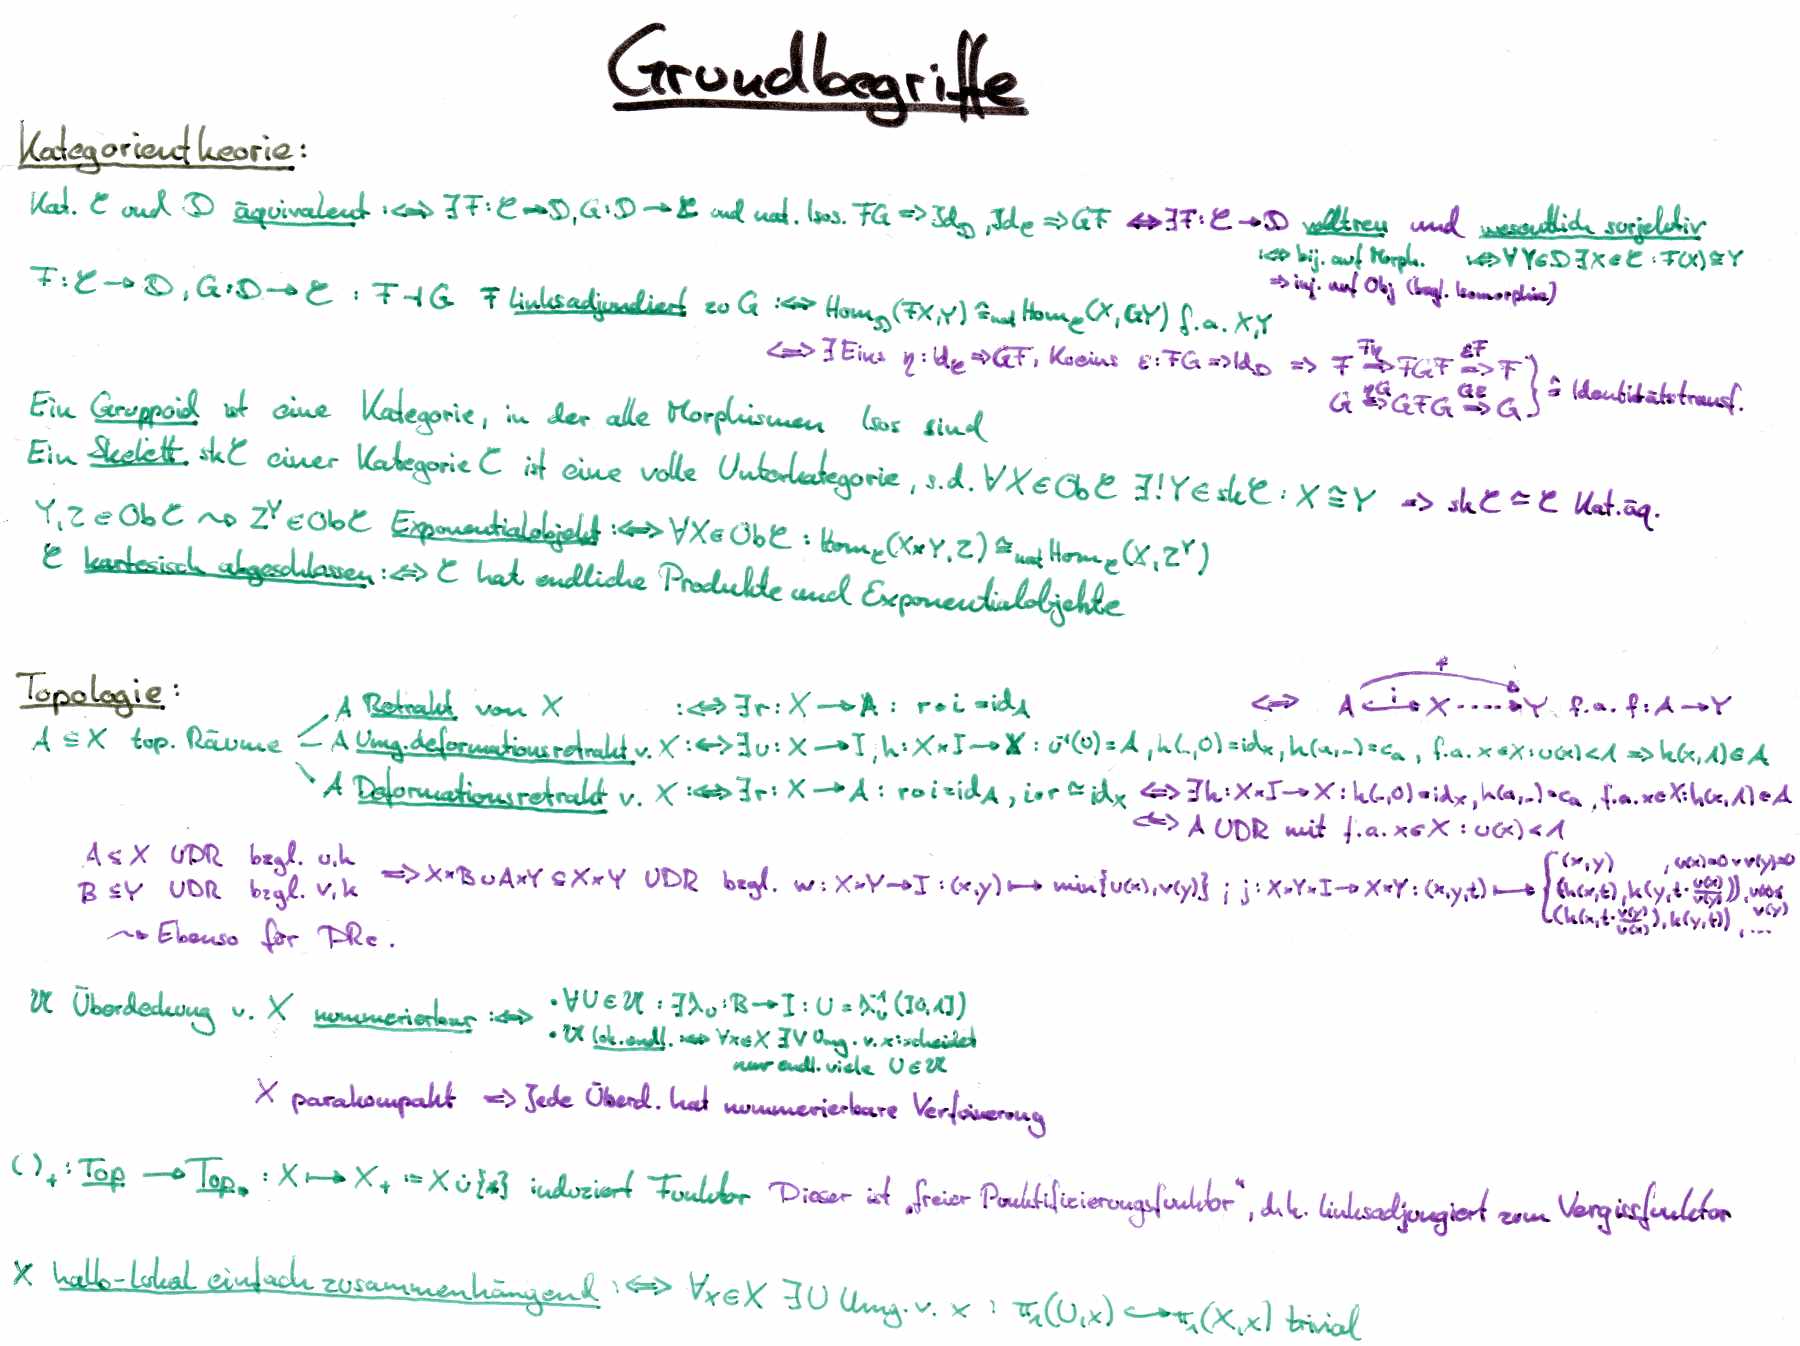 Grundbegriffe
Kategorientheorie:
Kat. 𝒞 und 𝒟 äquivalent :⇔ ∃F: 𝒞→𝒟, G: 𝒟→𝒞 und nat. Isos. FG ⇒ Id_𝒟, Id_𝒞 ⇒ GF ⇔ ∃F: 𝒞→𝒟 volltreu und wesentlich surjektiv
:⇔ bij. auf Morph. :⇔ ∀Y∈𝒟 ∃X∈𝒞: F(X)≅Y
⇒ inj. auf Obj (bzgl. Isomorphie)
F: 𝒞→𝒟, G: 𝒟→𝒞 : F⊣G F linksadjundiert zu G :⇔ Hom_𝒟(FX,Y) ≅_nat Hom_𝒞(X,GY) f.a. X,Y
⇔ ∃ Eins η: Id_𝒞 ⇒ GF, Koeins ε: FG ⇒ Id_𝒟 ⇒ F ⇒^{Fη} FGF ⇒^{εF} F
G ⇒^{ηG} GFG ⇒^{Gε} G } ≙ Identitätstransf.
Ein Gruppoid ist eine Kategorie, in der alle Morphismen Isos sind
Ein Skelett sk𝒞 einer Kategorie 𝒞 ist eine volle Unterkategorie, s.d. ∀X∈Ob𝒞 ∃!Y∈sk𝒞: X≅Y ⇒ sk𝒞 ≃ 𝒞 Kat.äq.
Y,Z∈Ob𝒞 ⇝ Z^Y∈Ob𝒞 Exponentialobjekt :⇔ ∀X∈Ob𝒞: Hom_𝒞(X×Y,Z) ≅_nat Hom_𝒞(X,Z^Y)
𝒞 kartesisch abgeschlossen :⇔ 𝒞 hat endliche Produkte und Exponentialobjekte
Topologie:
A Retrakt von X :⇔ ∃r: X→A : r∘i=id_A ⇔ A ↪^i X ⤏ Y f f.a. f: A→Y
A⊆X top. Räume – A Umg.deformationsretrakt v. X :⇔ ∃u: X→I, h: X×I→X : u⁻¹(0)=A, h(_,0)=id_X, h(a,_)=c_a, f.a. x∈X: u(x)<1 ⇒ h(x,1)∈A
A Deformationsretrakt v. X :⇔ ∃r: X→A : r∘i=id_A, i∘r≃id_X ⇔ ∃h: X×I→X: h(_,0)=id_X, h(a,_)=c_a, f.a. x∈X: h(x,1)∈A
⇔ A UDR mit f.a. x∈X: u(x)<1
A⊆X UDR bzgl. u,h
B⊆Y UDR bzgl. v,k ⇒ X×B∪A×Y⊆X×Y UDR bzgl. w: X×Y→I: (x,y)↦min{u(x),v(y)} ; j: X×Y×I→X×Y: (x,y,t)↦ { (x,y) , u(x)=0∨v(y)=0
(h(x,t), k(y,t·u(x)/v(y))), u(x)≤v(y)
(h(x,t·v(y)/u(x)), k(y,t)) , ...
⇝ Ebenso für DRe.
𝒰 Überdeckung v. X nummerierbar :⇔ • ∀U∈𝒰: ∃λ_U: B→I: U=λ_U⁻¹(]0,1])
• 𝒰 lok.endl. :⇔ ∀x∈X ∃V Umg. v. x: scheidet
nur endl. viele U∈𝒰
X parakompakt ⇒ Jede Überd. hat nummerierbare Verfeinerung
( )₊: Top → Top_* : X↦X₊ := X∪̇{*} induziert Funktor Dieser ist „freier Punktifizierungsfunktor“, d.h. linksadjungiert zum Vergissfunktor
X halb-lokal einfach zusammenhängend :⇔ ∀x∈X ∃U Umg. v. x : π₁(U,x) ↪ π₁(X,x) trivial